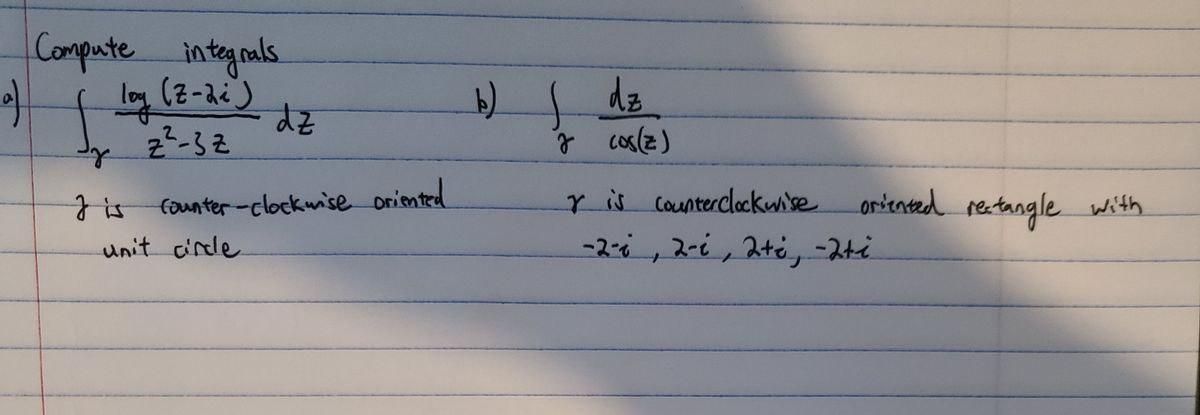 Compute integrals
a) ∫_γ log(z-2i) / (z²-3z) dz
b) ∫_γ dz / cos(z)
γ is counter-clockwise oriented
unit circle
γ is counterclockwise oriented rectangle with
-2-i, 2-i, 2+i, -2+i